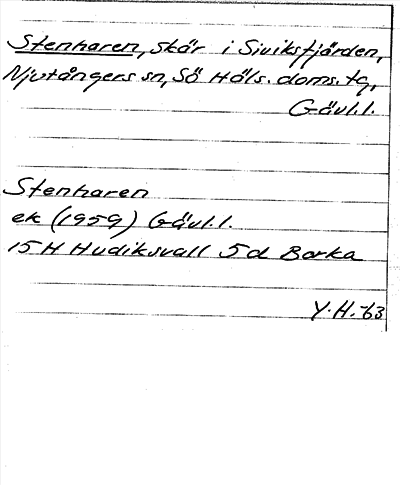 Stenharen, skär i Siviksfjärden,
Njutångers sn, Sö Häls. doms. tg,
Gävl.l.
Stenharen
ek (1959) Gävl.l.
15 H Hudiksvall 5 d Borka
Y.H.-63